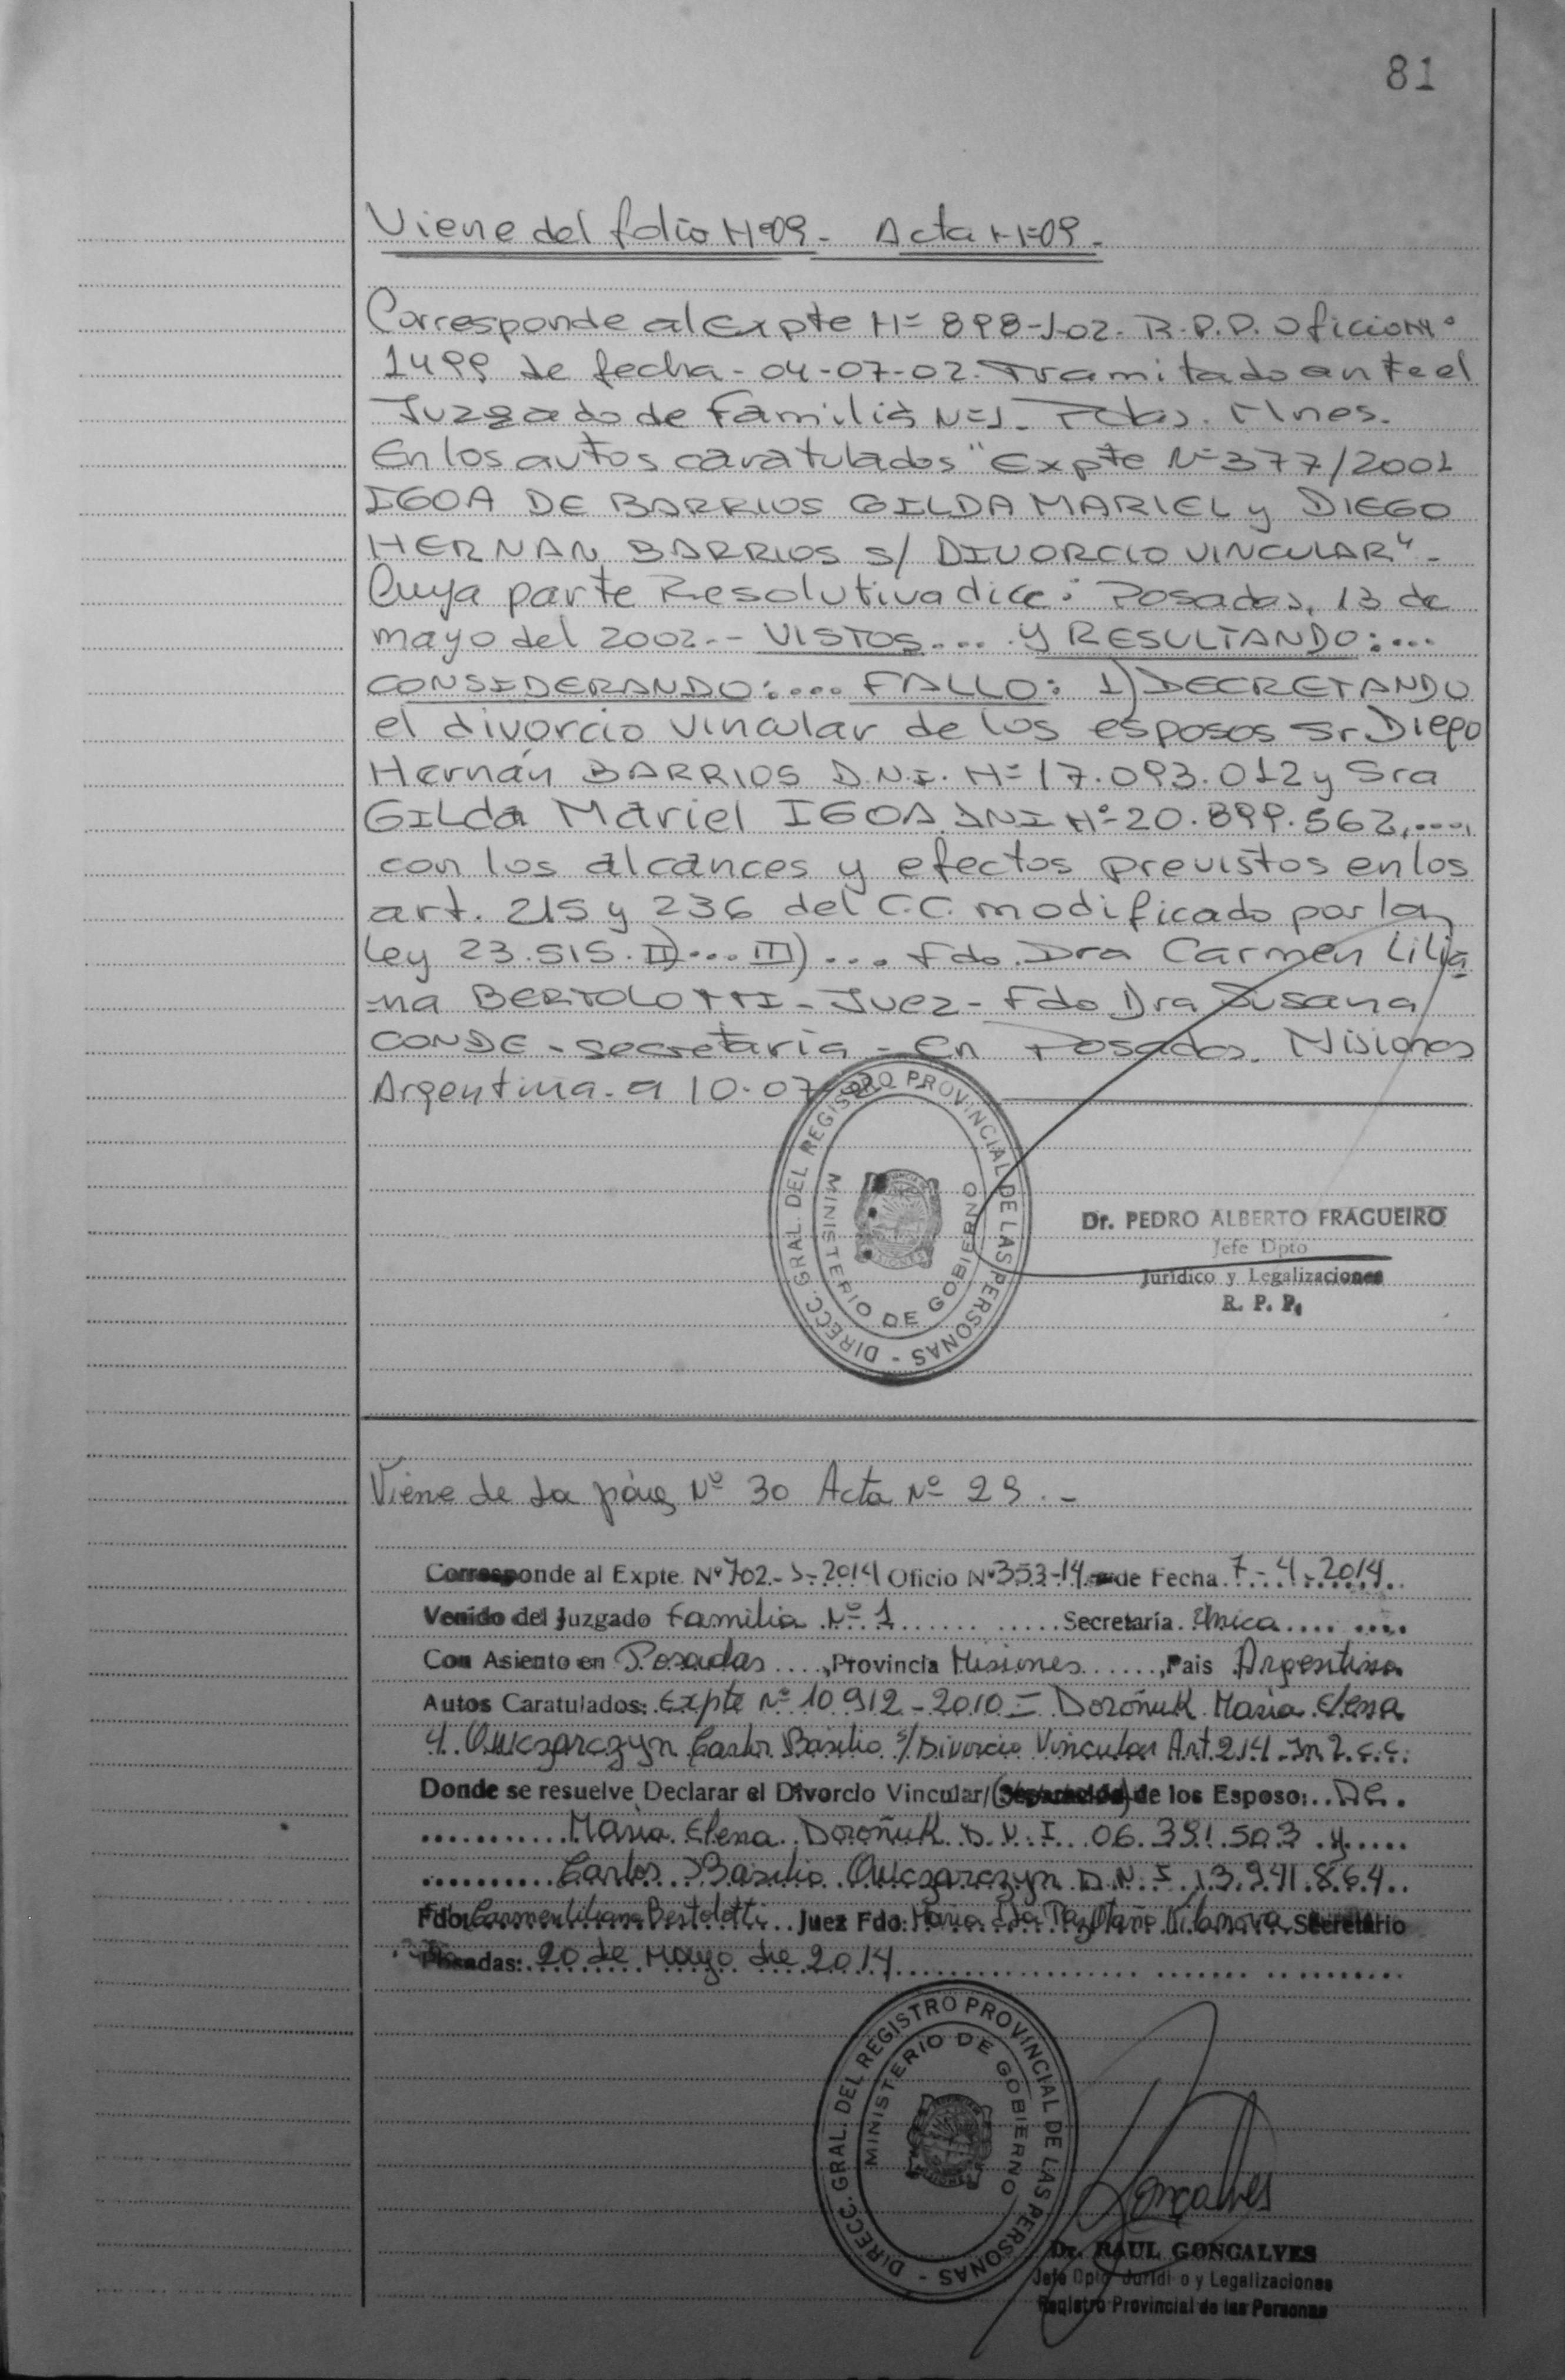 81
Viene del folio Nº09- Acta Nº09-
Corresponde al Expte Nº 898-J-02. R.P.P. Oficio Nº
1499 de fecha-04-07-02. Tramitado ante el
Juzgado de Familia Nº1- Pdas. Mnes.
En los autos caratulados "Expte Nº377/2001
IGOA DE BARRIOS GILDA MARIEL y DIEGO
HERNAN BARRIOS S/ DIVORCIO VINCULAR"-
Cuya parte Resolutiva dice: Posadas, 13 de
mayo del 2002.- VISTOS.... Y RESULTANDO:...
CONSIDERANDO:.... FALLO: 1) DECRETANDO
el divorcio vincular de los esposos Sr Diego
Hernán BARRIOS D.N.I. Nº17.093.012 y Sra
GILda Mariel IGOA DNI Nº20.899.562,....,
con los alcances y efectos previstos en los
art. 215 y 236 del C.C. modificado por la
Ley 23.515. II).... III).... Fdo. Dra Carmen Lilia
=na BERTOLOTTI-Juez-Fdo Dra Susana
CONDE-secretaria-En Posadas. Misiones
Argentina-a 10-07-
DIRECC. GRAL. DEL REGISTRO PROVINCIAL DE LAS PERSONAS -
MINISTERIO DE GOBIERNO
Dr. PEDRO ALBERTO FRAGUEIRO
Jefe Dpto
Jurídico y Legalizaciones
R. P. P.
Viene de La pág Nº 30 Acta Nº 29.-
Corresponde al Expte. Nº 702-J-2014 Oficio Nº 353-14 de Fecha 7-4-2014
Venido del Juzgado Familia Nº 1 ........ Secretaría Unica........
Con Asiento en Posadas ...., Provincia Misiones ......, Pais Argentina
Autos Caratulados: Expte Nº 10912-2010 - Doroñuk Maria Elena
y Owczarczyn Carlos Basilio s/Divorcio Vincular Art. 214-In 2.C.C.
Donde se resuelve Declarar el Divorcio Vincular/ de los Esposo:
...........Maria Elena Doroñuk D.N.I. 06.391.503 y.....
..........Carlos Basilio Owczarczyn D.N.I. 13.941.864..
Fdo: Carmen Liliana Bertolotti... Juez Fdo: Maria Vilanova Secretario
Posadas: 20 de Mayo de 2014................
DIRECC. GRAL. DEL REGISTRO PROVINCIAL DE LAS PERSONAS -
MINISTERIO DE GOBIERNO
Gonçalves
Dr. RAUL GONCALVES
Jefe Dpto Juridi o y Legalizaciones
Registro Provincial de las Personas